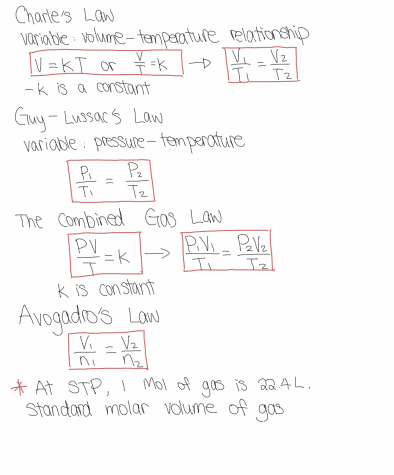 Charle's Law
variable: volume-temperature relationship
V = KT or V/T = K → V₁/T₁ = V₂/T₂
- K is a constant
Guy-Lussac's Law
variable: pressure-temperature
P₁/T₁ = P₂/T₂
The Combined Gas Law
PV/T = K → P₁V₁/T₁ = P₂V₂/T₂
K is constant
Avogadro's Law
V₁/n₁ = V₂/n₂
* At STP, 1 Mol of gas is 22.4 L.
Standard molar volume of gas